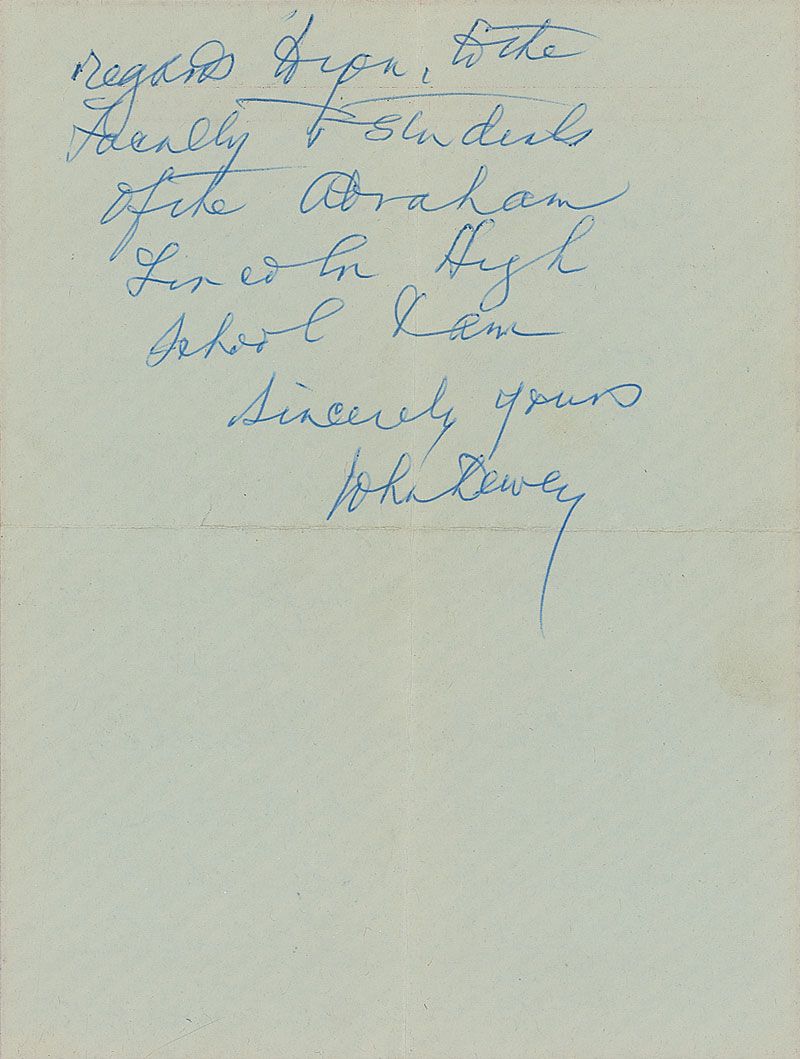 regards to you, to the
Faculty & students
of the Abraham
Lincoln High
School I am
Sincerely yours
John Dewey